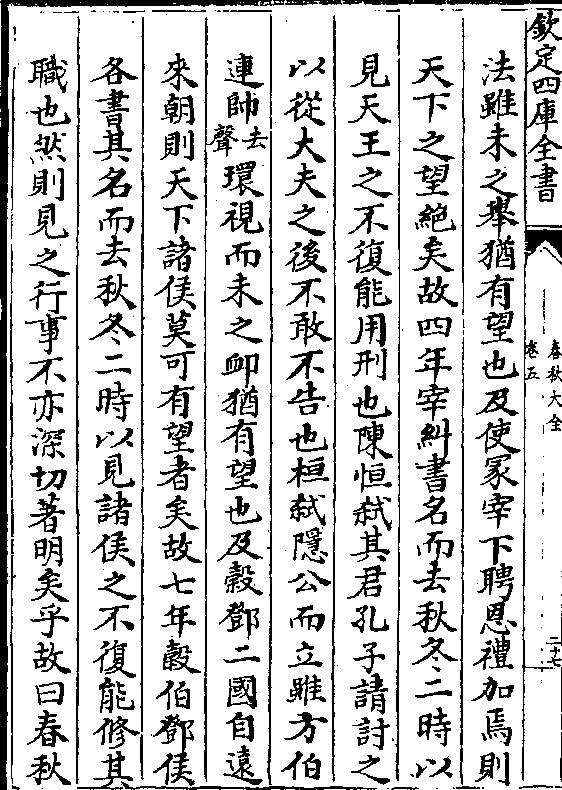 欽定四庫全書
春秋大全
卷五
二十七
法雖未之舉猶有望也及使冢宰下聘恩禮加焉則
天下之望絕矣故四年宰糾書名而去秋冬二時以
見天王之不復能用刑也陳恒弑其君孔子請討之
以從大夫之後不敢不告也桓弑隱公而立雖方伯
連帥去聲環視而未之卹猶有望也及穀鄧二國自遠
來朝則天下諸侯莫可有望者矣故七年穀伯鄧侯
各書其名而去秋冬二時以見諸侯之不復能修其
職也然則見之行事不亦深切著明矣乎故曰春秋